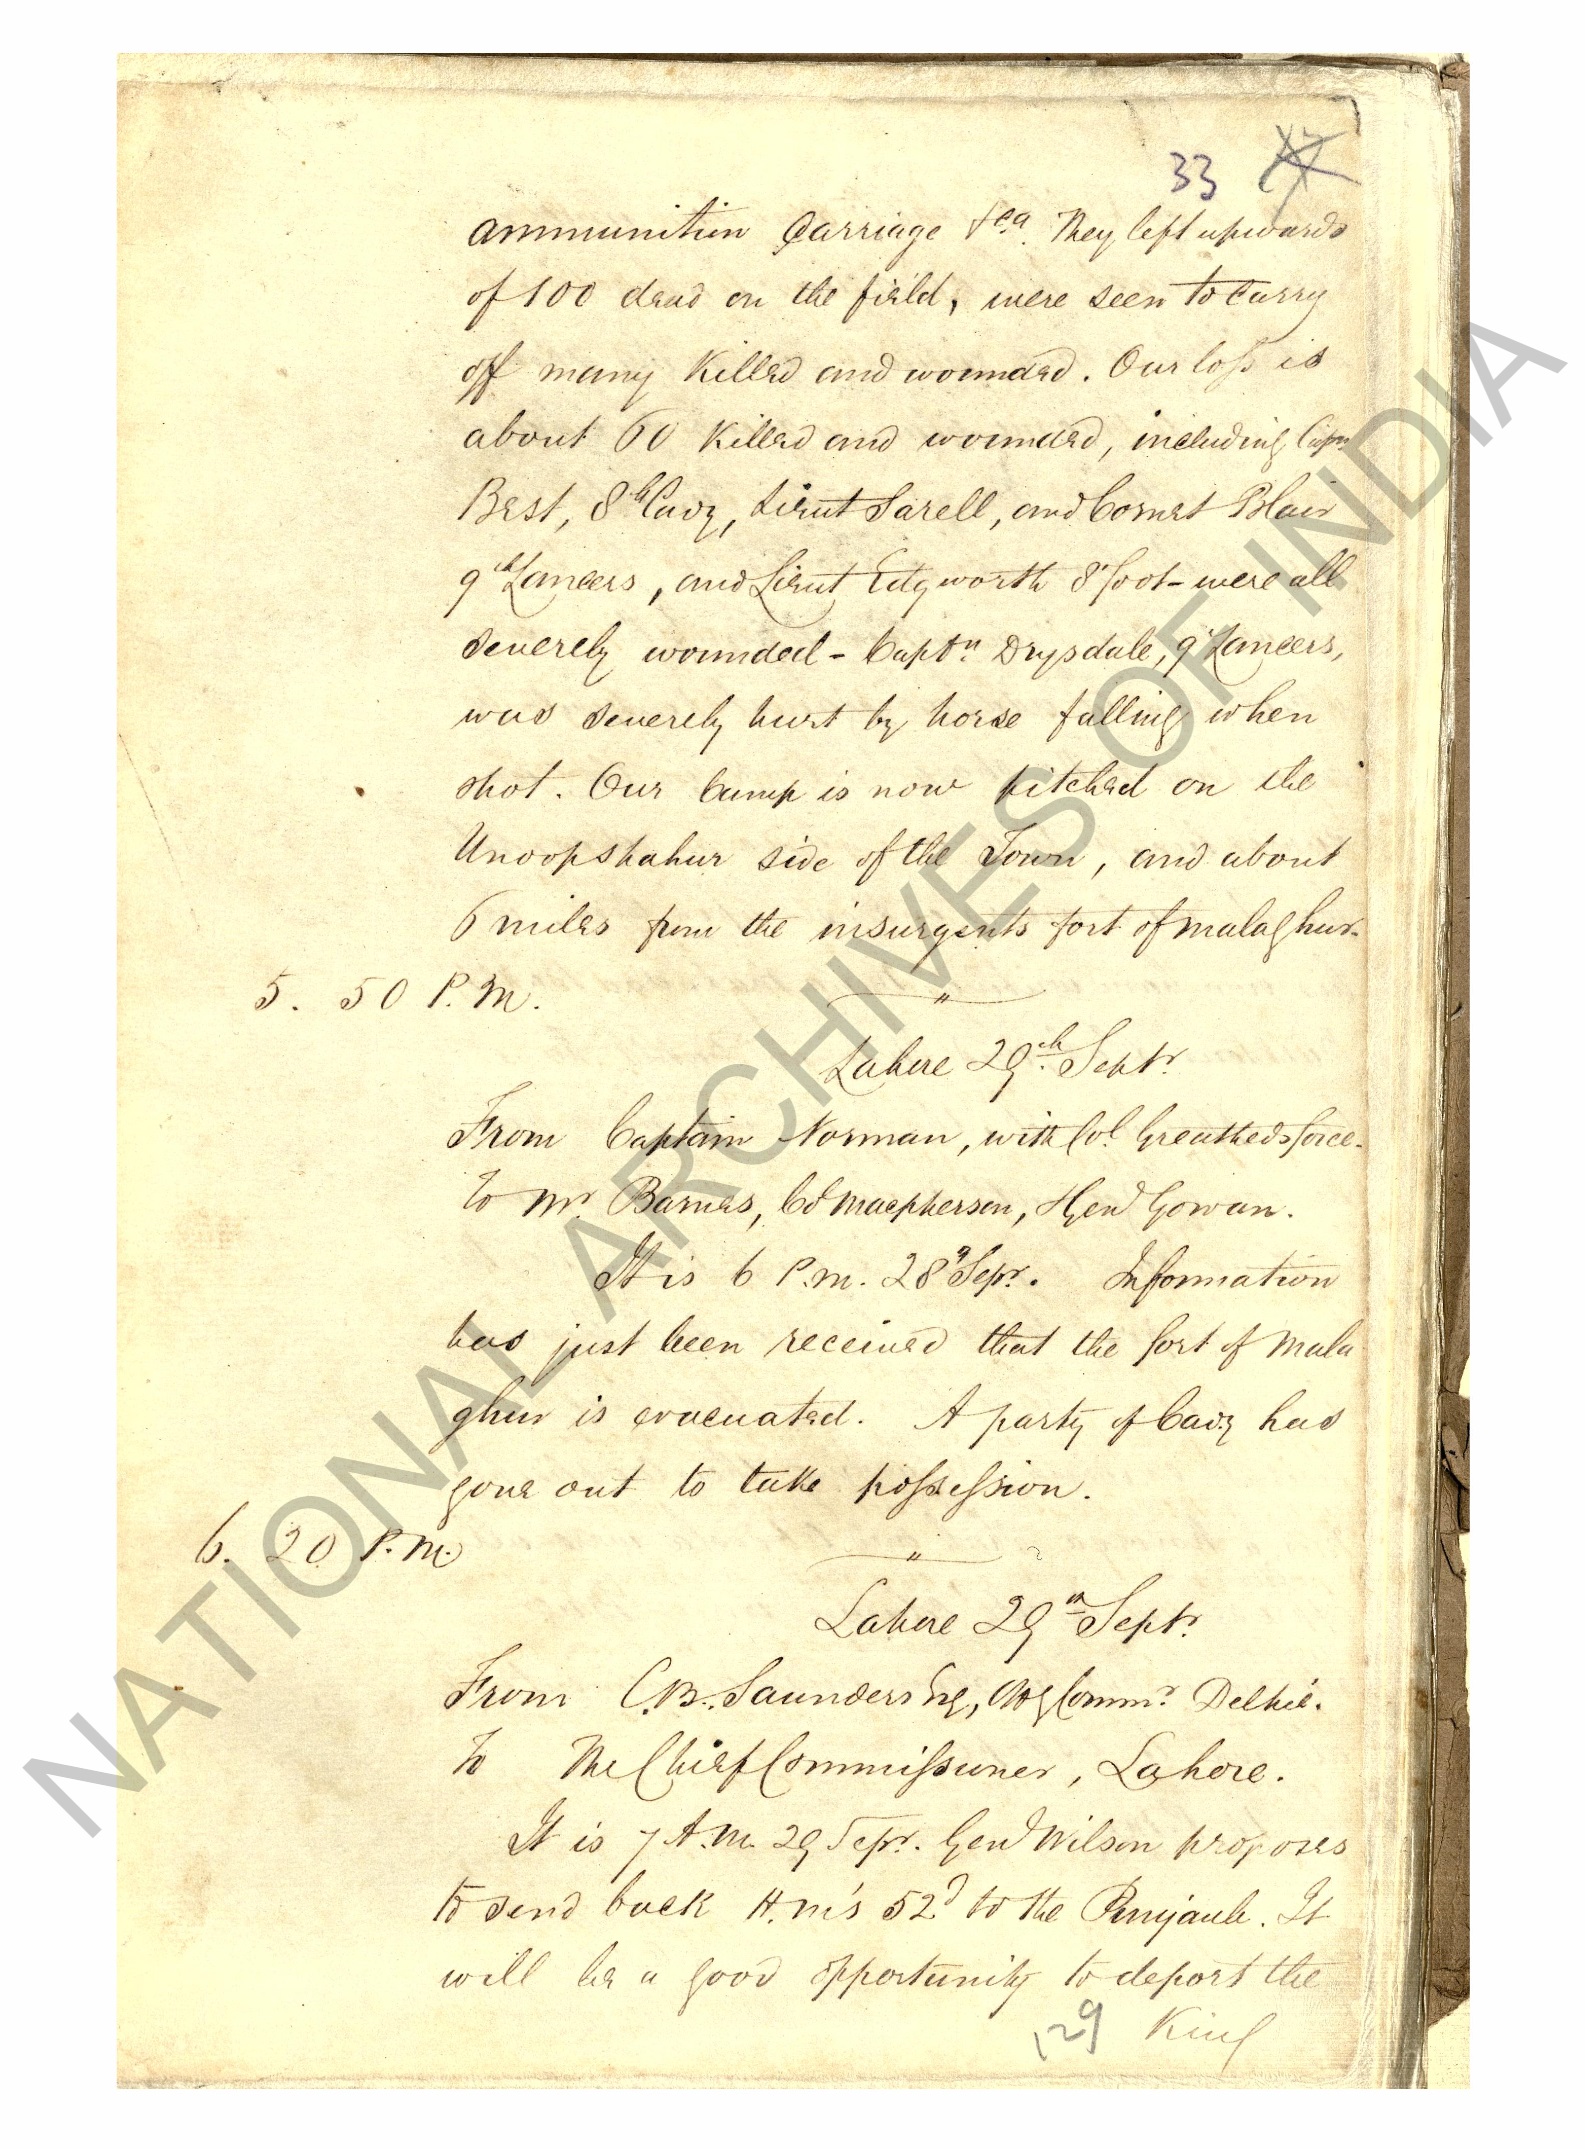 33
ammunition Carriage &ca. They left upwards
of 100 dead on the field, were seen to carry
off many Killed and wounded. Our loss is
about 60 Killed and wounded, including Captn
Best, 8th Cavy, Lieut Sarell, and Cornet Blair
9th Lancers, and Lieut Edgworth 8th foot - were all
severely wounded - Captn. Drysdale, 9th Lancers,
was severely hurt by horse falling when
shot. Our Camp is now pitched on the
Unoopshahur side of the Town, and about
6 miles from the insurgents fort of Malaghur.
5. 50 P.M.
Lahore 29th Septr.
From Captain Norman, with Col. Greatheds force.
To Mr Barnes, Col Macpherson, Genl Gowan.
It is 6 P.m. 28th Sepr. Information
has just been received that the fort of Mala
ghur is evacuated. A party of Cavy has
gone out to take possession.
6. 20 P.M.
Lahore 29th Septr.
From C.B. Saunders Esq, Offg Commr. Delhie.
To The Chief Commissioner, Lahore.
It is 7 A.M. 29 Sepr. Genl Wilson proposes
to send back H.M's 52d to the Punjaub. It
will be a good opportunity to deport the
King
129
NATIONAL ARCHIVES OF INDIA